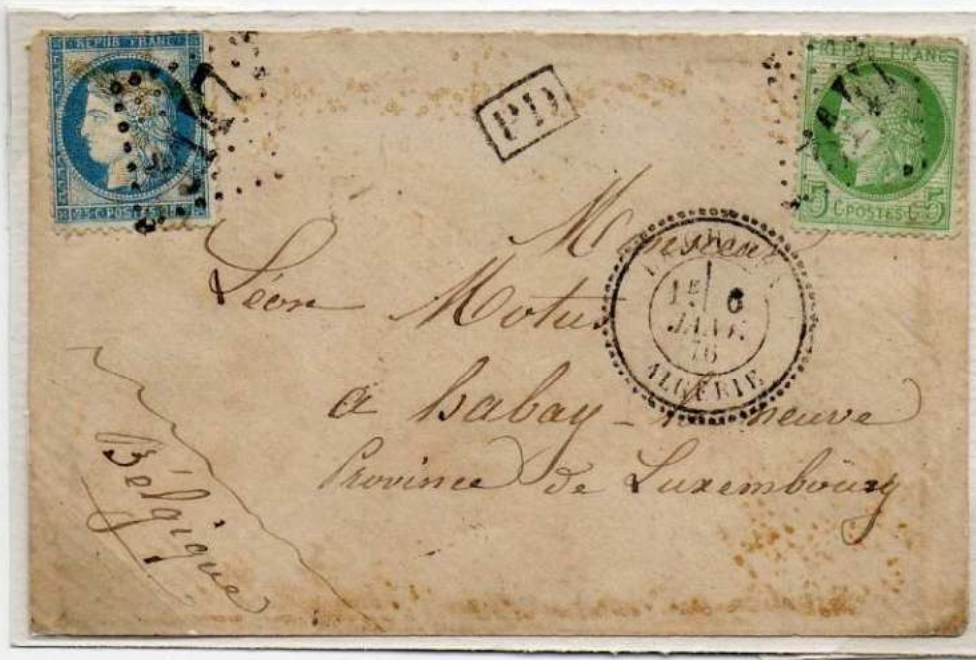 REPUB FRANC
25 C POSTES 25
PD
REPUB FRANC
5 C POSTES C 5
Monsieur
Léon Motus
1E 6
JANV.
76
ALGÉRIE
a habay-la neuve
Province de Luxembourg
Bélgique